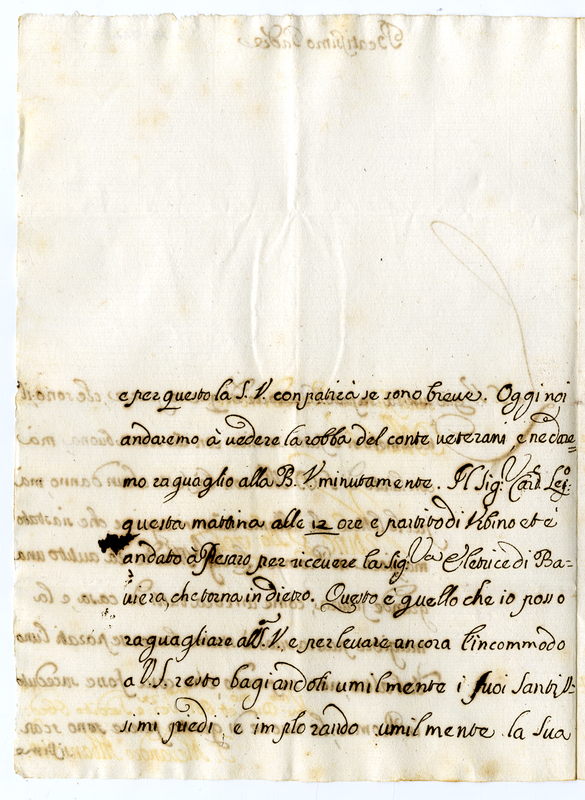 e per questo la S. V. conpatirà se sono breve. Oggi noi
andaremo à vedere la robba del conte veterani, e ne dare=
mo raguaglio alla B. V. minutamente. Il Sig.r Card. Leg.o
questa mattina alle 12 ore e partito di Urbino et è
andato à Pesaro, per ricevere la Sig.ra Eletrice di Ba=
viera, che torna in dietro. Questo è quello che io posso
raguagliare alla S. V. e per levare ancora l'incommodo
a V. S. resto bagiandoli umilmente i suoi santis=
simi piedi e implorando umilmente la sua